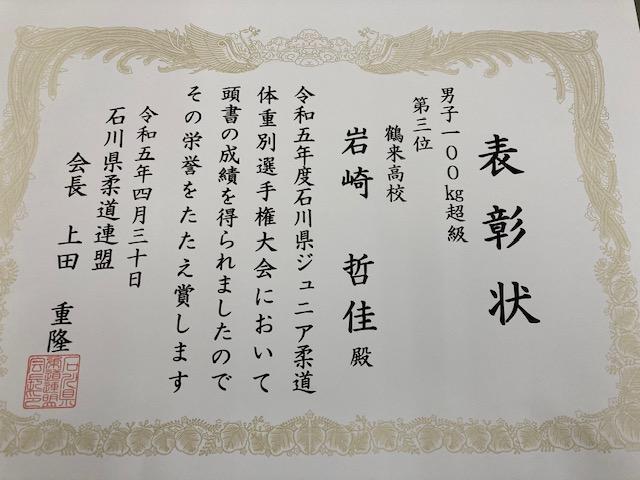 表彰状
男子一〇〇kg超級
第三位
鶴来高校
岩崎 哲佳 殿
令和五年度石川県ジュニア柔道
体重別選手権大会において
頭書の成績を得られましたので
その栄誉をたたえ賞します
令和五年四月三十日
石川県柔道連盟
会長 上田 重隆